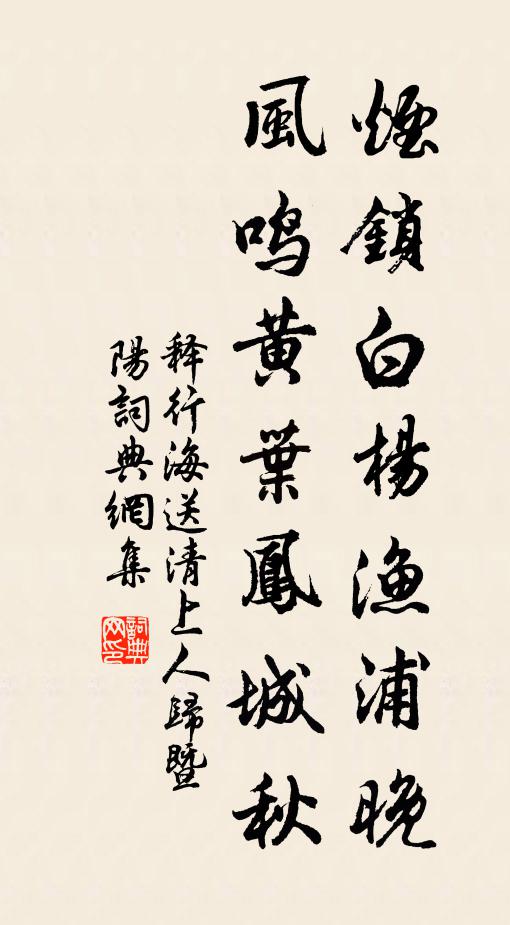 煙鎖白楊漁浦晚
風鳴黃葉鳳城秋
释行海送清上人歸暨
陽詞典網集
詞典网印